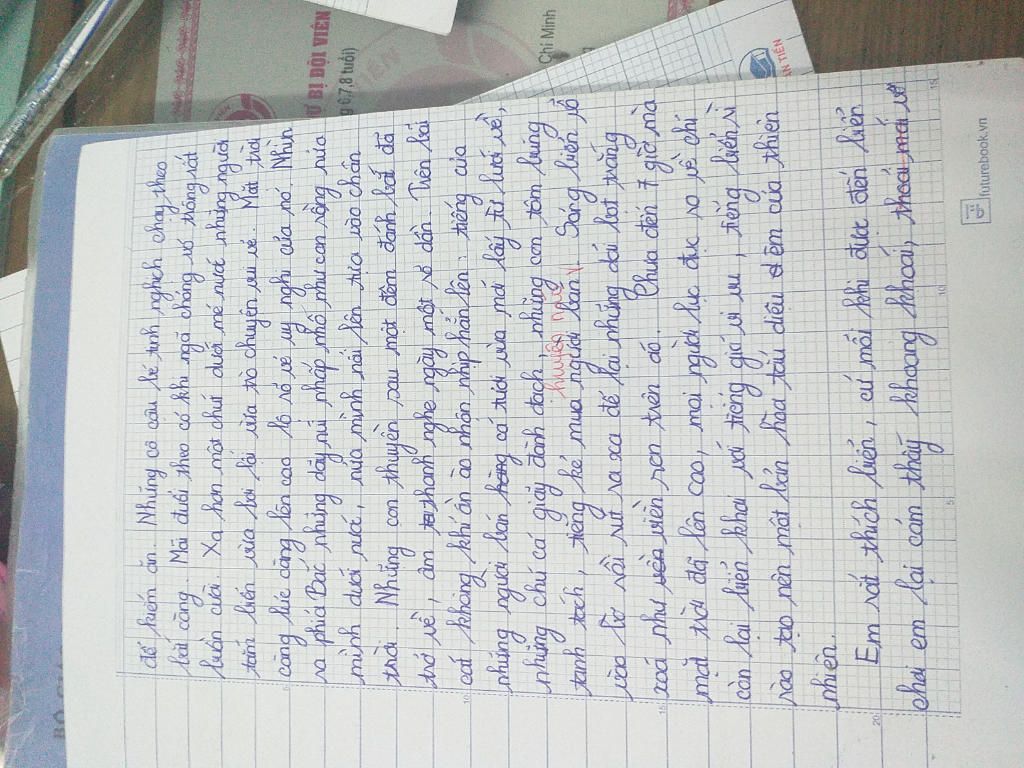 để kiếm ăn. Những cô cậu bé tinh nghịch chạy theo
bắt còng. Mải đuổi theo có khi ngã chỏng vó trông rất
buồn cười. Xa hơn một chút dưới mé nước những người
tắm biển vừa bơi lội vừa trò chuyện vui vẻ. Mặt trời
càng lúc càng lên cao lộ rõ vẻ uy nghi của nó. Nhìn
ra phía Bắc những dãy núi nhấp nhô như con rồng nửa
mình dưới nước, nửa mình nổi lên tựa vào chân
trời. Những con thuyền sau một đêm đánh bắt đã
trở về, âm thanh nghe ngày một rõ dần. Trên bãi
cát không khí ồn ào nhộn nhịp hẳn lên: tiếng của
những người bán hàng cá tươi vừa mới lấy từ lưới về,
những chú cá giãy đành đạch, những con tôm búng
tanh tách, tiếng kẻ mua người bán. Sóng biển xô
huyên náo
vào bờ rồi rút ra xa để lại những dải bọt trắng
xoá như viền ren trên đó. Chưa đến 7 giờ mà
mặt trời đã lên cao, mọi người lục đục ra về chỉ
còn lại biển khơi với tiếng gió vi vu, tiếng biển rì
rào tạo nên một bản hòa tấu diệu của thiên
nhiên.
Em rất thích biển, cứ mỗi khi được đến biển
chơi em lại cảm thấy khoang khoái, thoải mái
BỘ
DỰ BỊ ĐỘI VIÊN
6,7,8 tuổi)
Chí Minh
futurebook.vn
5
10
15
20
5
10
15